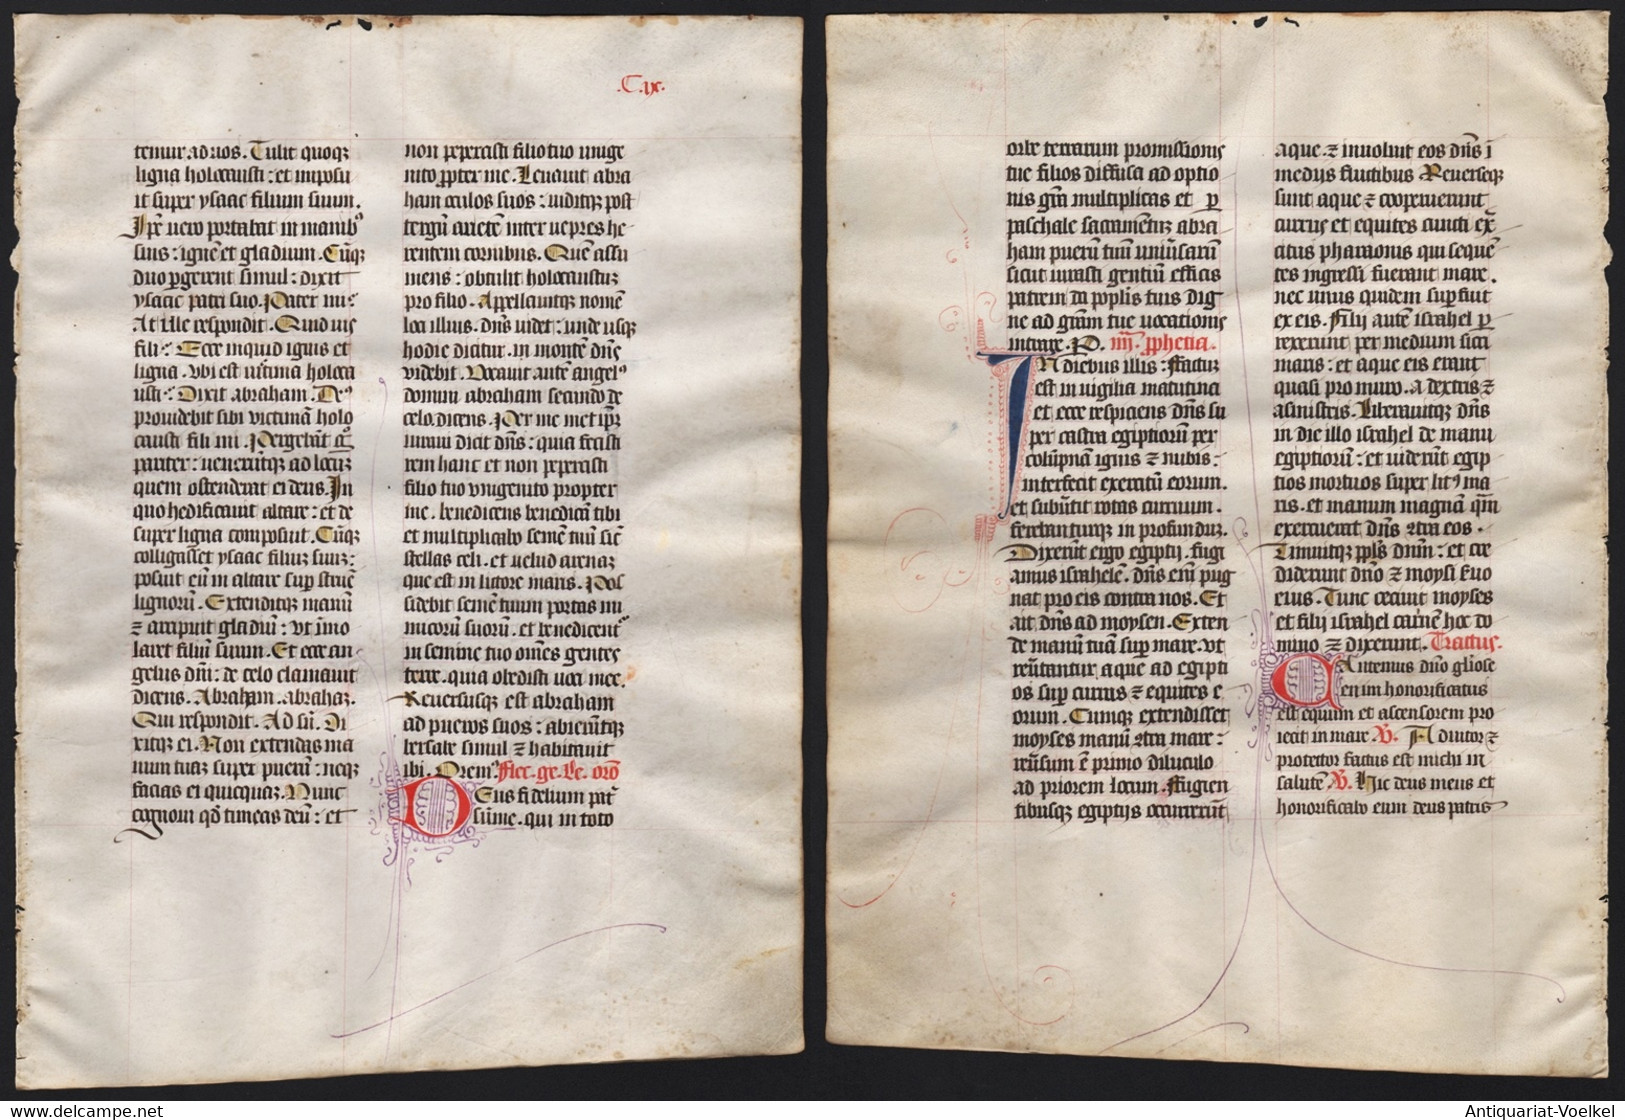 .C.ix.
temur ad uos. Tulit quoqꝫ
ligna holocausti : et imposu
it super ysaac filium suum.
Ip̄e uero portabat in manibꝰ
suis : ignē et gladium. Cūqꝫ
duo ꝑgerent simul : dixit
ysaac patri suo. Pater mi :
At ille respondit. Quid uis
fili : Ecce inquid ignis et
ligna. vbi est uictima holoca
usti : Dixit abraham. Deꝰ
prouidebit sibi victimā holo
causti fili mi. Pergebāt g̊
pariter : uenerūtqꝫ ad locuꝫ
quem ostenderat ei deus. In
quo hedificauit altare : et de
super ligna composuit. Cūqꝫ
colligasset ysaac filiuꝫ suuꝫ :
posuit eū in altare suꝑ struē
lignorū. Extenditqꝫ manū
ꝛ arripuit gladiū : vt īmo
laret filiū suum. Et ecce an
gelus dn̄i : de celo clamauit
dicens. Abraham. abrahaꝫ.
Qui respondit. Ad sū. Di
xitqꝫ ei. Non extendas ma
num tuaꝫ super puerū : neqꝫ
facias ei quicquaꝫ. Nunc
cognoui qd̄ timeas deū : et
non pepercisti filio tuo unige
nito ꝓpter me. Leuauit abra
ham oculos suos : uiditqꝫ post
tergū arietē inter uepres he
rentem cornibus. Quē assu
mens : obtulit holocaustuꝫ
pro filio. Appellauitqꝫ nomē
loci illius. dn̄s uidet : unde usqꝫ
hodie dicitur. in monte dn̄s
videbit. Uocauit autē angelꝰ
domini abraham secundo de
celo. dicens. Per me met ip̄ꝫ
iuraui dicit dn̄s : quia fecisti
rem hanc et non pepercisti
filio tuo vnigenito propter
me. benedicens benedicā tibi
et multiplicabo semē tuū sic̄
stellas celi. et uelud arenaꝫ
que est in litore maris. Pos
sidebit semē tuum portas ini
micorū suorū. et benedicentꝰ
in semine tuo om̄es gentes
terre. quia obedisti uoci mee.
Reuersusqꝫ est abraham
ad pueros suos : abierūtqꝫ
bersabe simul ꝛ habitauit
ibi. Oremꝰ Flec. ge. Le. orō
Deus fidelium pat̄
sūme. qui in toto
orbe terrarum promissionis
tue filios diffusa ad optio
nis gr̄m multiplicas et ꝑ
paschale sacramentuꝫ abra
ham puerū tuū uniūsarū
sicut iurasti gentiū efficis
patrem da popl̄is tuis dig
ne ad gr̄am tue uocationis
intrare. P. iiij. ꝓphetia.
In diebus illis : ffactuꝫ
est in uigilia matutina
et ecce respiciens dn̄s su
per castra egiptiorū per
colūpnā ignis ꝛ nubis :
interfecit exercitū eorum.
et subūtit rotas curruum.
ferebanturqꝫ in profunduꝫ.
Dixerūt ergo egiptij. fugi
amus israhelē. dn̄s enī pug
nat pro eis contra nos. Et
ait dn̄s ad moysen. Exten
de manū tuā suꝑ mare. vt
reūtantur aque ad egipti
os suꝑ currus ꝛ equites e
orum. Cumqꝫ extendisset
moyses manū ꝯtra mare :
reūsum ē primo diluculo
ad priorem locum. ffugien
tibusqꝫ egiptijs occurrerūt
aque. ꝛ inuoluit eos dn̄s ī
medijs fluctibus Reuerseqꝫ
sunt aque ꝛ cooperuerunt
currus et equites cuncti ex̄
citus pharaonis qui sequen̄
tes ingressi fuerant mare.
nec unus quidem suꝑfuit
ex eis. Filij autē israhel ꝑ
rexerunt per medium sicci
maris : et aque eis erant
quasi pro muro. a dextris ꝛ
a sinistris. Liberauitqꝫ dn̄s
in die illo israhel de manu
egiptiorū : et uiderūt egip
tios mortuos super litꝰ ma
ris. et manum magnā qm̄
exercuerat dn̄s ꝯtra eos.
Timuitqꝫ ppl̄s dn̄m : et cre
diderunt dn̄o ꝛ moysi ẜuo
eius. Tunc cecinit moyses
et filij israhel carmē hoc do
mino ꝛ dixerunt. Tractus.
Cantemus dn̄o gl̄iose
enim honorificatus
est equum et ascensorem pro
iecit in mare V̷. Adiutor ꝛ
protector factus est michi in
salutē V̷. Hic deus meus et
honorificabo eum deus patris
Antiquariat-Voelkel
www.delcampe.net